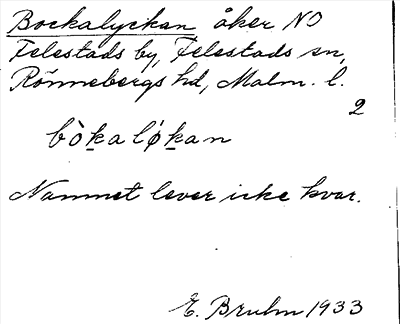 Bockalyckan åker NO
Felestads by, Felestads sn,
Rönnebergs hd, Malm. l.
2
bòkaløkan
Namnet lever icke kvar.
E. Bruhn 1933